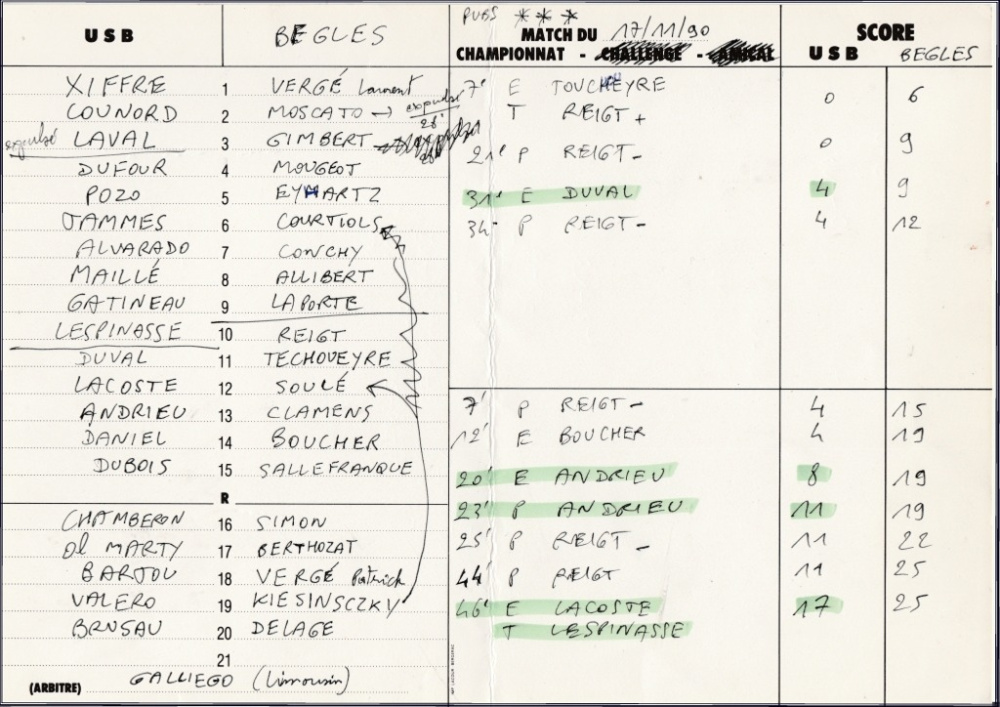 USB BEGLES
XIFFRE 1 VERGÉ Laurent
LOUNORD 2 MOSCATO → expulsé 28'
expulsé LAVAL 3 GIMBERT
DUFOUR 4 MOUGEOT
POZO 5 EYHARTZ
JAMMES 6 COURTIOLS
ALVARADO 7 CONCHY
MAILLÉ 8 ALLIBERT
GATINEAU 9 LAPORTE
LESPINASSE 10 REIGT
DUVAL 11 TECHOUEYRE
LACOSTE 12 SOULÉ
ANDRIEU 13 CLAMENS
DANIEL 14 BOUCHER
DUBOIS 15 SALLEFRANQUE
R
CHAMBERON 16 SIMON
Ol MARTY 17 BERTHOZAT
BARJOU 18 VERGÉ Patrick
VALERO 19 KIESINSCZKY
BRUSAU 20 DELAGE
21
(ARBITRE) GALLIEGO (Limousin)
PUBS ***
MATCH DU 17/11/90 SCORE
CHAMPIONNAT - CHALLENGE - AMICAL USB BEGLES
7' E TOUCHEYRE 0 6
T REIGT +
21' P REIGT - 0 9
31' E DUVAL 4 9
34' P REIGT - 4 12
7' P REIGT - 4 15
12' E BOUCHER 4 19
20' E ANDRIEU 8 19
23' P ANDRIEU 11 19
25' P REIGT - 11 22
44' P REIGT 11 25
46' E LACOSTE 17 25
T LESPINASSE